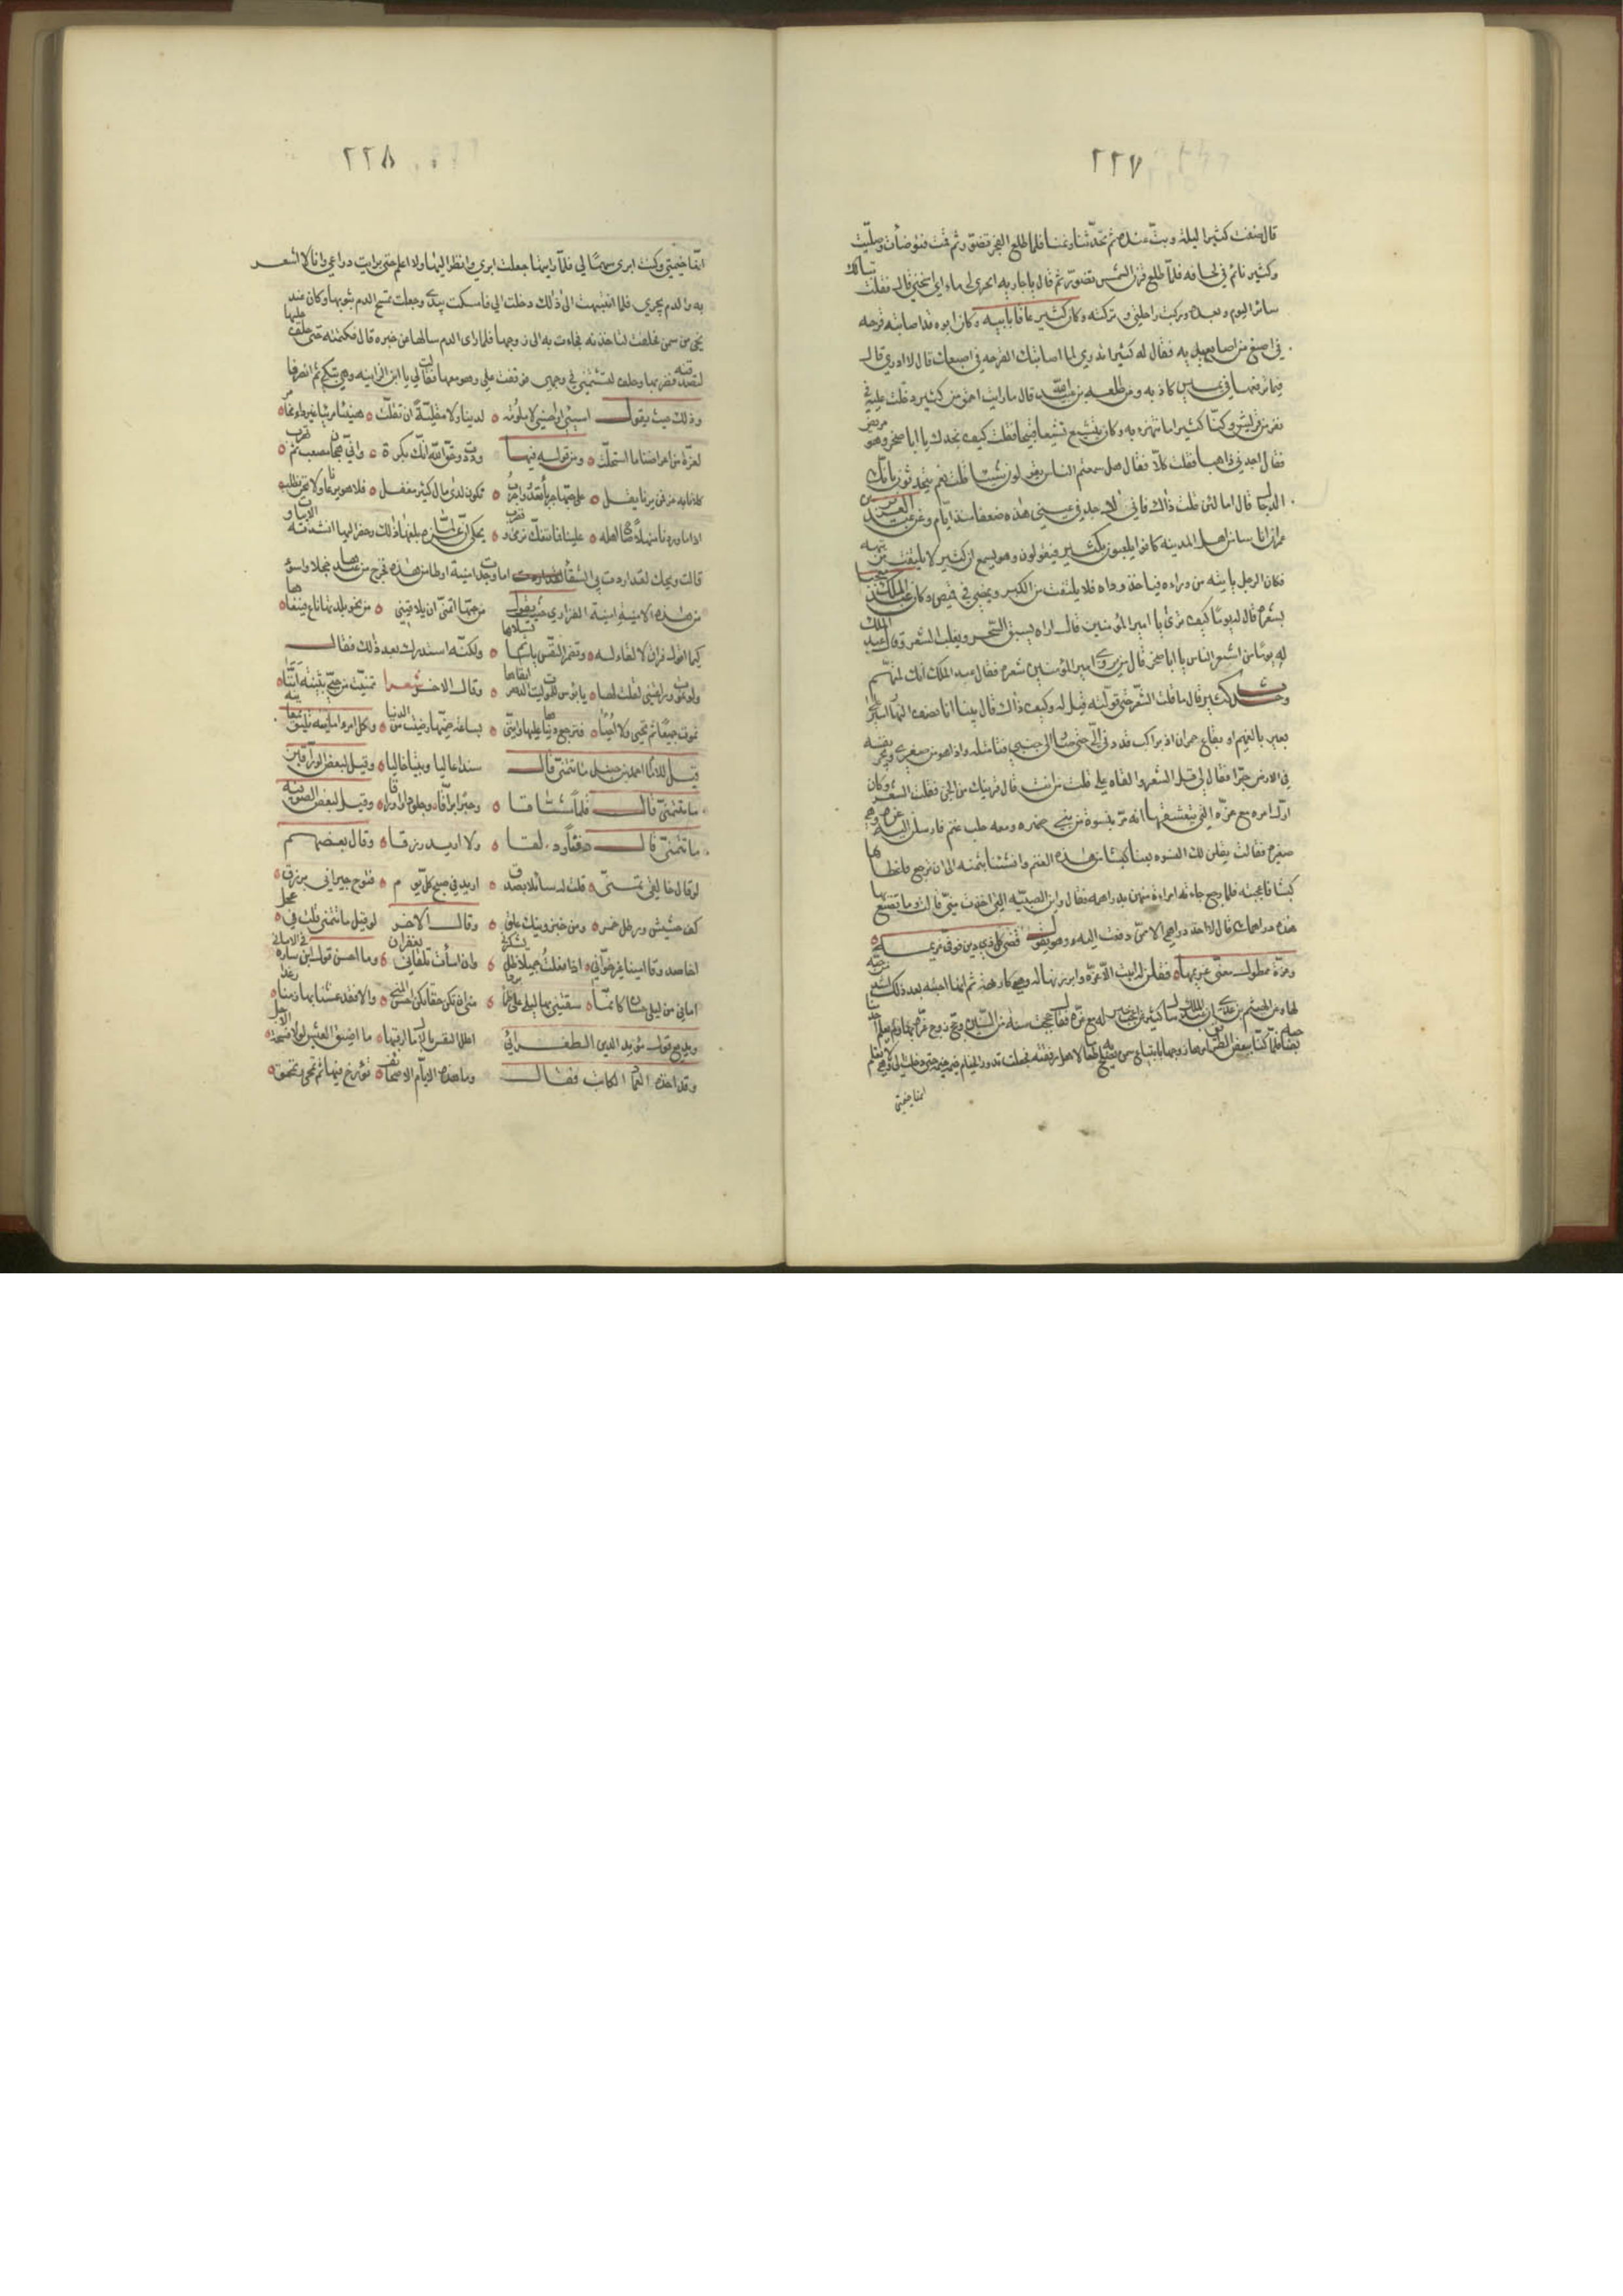 ٢٢٧
قال ضفت كثيرا ليلة وبت عنده ثم تحدثنا ونمنا فلما طلع الفجر تضور ثم قمت فتوضأت وصليت
وكثير نائم في لحافه فلما طلع قرن الشمس تضور ثم قال يا جارية اسجري لي ماء اي سخني قال فقلت تبا لك
سائر اليوم وبعده وركبت راحلتي وتركته وكان كثير عاقا بابيه وكان ابوه قد اصابته قرحة
في اصبع من اصابع يده فقال له كثير اتدري لما اصابتك القرحة في اصبعك قال لا ادري قال
مما ترفعها في يمين كاذبة وعن طلحة بن عبيد الله قال ما رايت احمق من كثير دخلت عليه في
نفر من قريش وكنا كثيرا ما نتهزء به وكان يتشيع تشيعا قبيحا فقلت كيف تجدك يا ابا صخر وهو مريض
فقال اجدني ذاهبا فقلت كلا فقال هل سمعتم الناس يقولون شيئا قلت نعم يتحدثون بانك
الدجال قال اما لئن قلت ذاك فاني لاجد في عيني هذه ضعفا منذ ايام وعن عبد العزيز بن
عمران ان ناسا من اهل المدينة كانوا يلعبون بكثير فيقولون وهو يسمع ان كثير لا يلتفت من تيهه
فكان الرجل ياتيه من وراءه فياخذ رداه فلا يلتفت من الكبر ويمضي في قميص وكان عبد الملك معجبا
بشعره قال له يوما كيف ترى يا امير المؤمنين قال اراه يسبق السحر ويغلب الشعر وقال عبد الملك
له يوما من اشعر الناس يا ابا صخر قال من يروي امير المؤمنين شعره فقال عبد الملك انك لمنهم
وحدث كثير قال ما قلت الشعر حتى قولته قيل له وكيف ذاك قال بينا انا نصف النهار اسير على
بعير بالغميم او بقاع حمران اذ براكب قد دنى الي حتى صار الى جنبي فتاملته واذا هو من صفر يجر نفسه
في الارض جرا فقال لي قل الشعر والقاه علي قلت من انت قال قرينك من الجن فقلت الشعر وكان
اول امره مع عزة التي يتعشقها انه مر بنسوة من بني ضمرة ومعه جلب غنم فارسلن اليه عزة وهي
صغيرة فقالت يقلن لك النسوة بعنا كبشا من هذه الغنم وانسئنا بثمنه الى ان ترجع فاعطاها
كبشا فاعجبته فلما رجع جاءته امراءة منهن بدراهمه فقال واين الصبية التي اخذت مني قالت وما تصنع بها
هذه دراهمك قال لا اخذ دراهمي الا ممن دفعت اليه وهو يقول قضى كل ذي دين فوفى غريمه
وعزة ممطول معنى غريمها فقلن له ابيت الا عزة وابرزنها له وهي كارهة ثم انها احبته بعد ذلك اشد من حبه
انقا خيمتي
٢٢٨
انقا خيمتي وكنت ابري سهما لي فلما رايتها جعلت ابري وانظر اليها ولا اعلم حتى بريت ذراعي وانا لا اشعر
به والدم يجري فلما انتبهت الى ذلك دخلت الي فامسكت بيدي وجعلت تمسح الدم بثوبها وكان عند
نحي من سمن فحلفت لتاخذنه فجاءت به الى زوجها فلما راى الدم سالها عن خبره قال فكتمته حتى حلف عليها
لتصدقنه فضربها وحلف لتشتمني في وجهي فوقفت علي وهو معها فقالت لي يا ابن الزانية وهي تبكي ثم انصرفا
وذلك حيث يقول اسيئي او احسني لا ملومة لدينا ولا مقلية ان تقلت هنيئا مريئا غير داء مخامر
لعزة من اعراضنا ما استحلت ومن قوله فيها وددت وحق الله انك بكرة واني هجان مصعب ثم نهرب
كلانا به عر فمن يرنا يقل على حسنها جرباء تعدي واجرب نكون لذي مال كثير مغفل فلا هو يرعانا ولا نحن نطلب
اذا ما وردنا منهلا صاح اهله علينا فلا ننفك نرمى ونضرب يحكى ان عزة لما بلغها ذلك وحضر اليها انشدته الابيات و
قالت ويحك لقد اردت بي الشقا اما وجدت امنية اوطا من هذه فخرج من عندها خجلا واسوء
من هذه الامنية امنية الفزاري حيث يقول من حبها اتمنى ان يلاقيني من نحو بلدتها ناع فينعاها
كيما اقول فراق لا لقاء له وتضمر النفس ياسا ثم تسلاها ولكنه استدرك بعد ذلك فقال
ولو تموت وراعتني لقلت لها يا بؤس للموت ليت الدهر ابقاها وقال الاخر شعرا تمنيت من حبي بثينة اننا
نموت جميعا ثم نحيى ولا
قيل للامام احمد بن حنبل ما تتمنى قال سندا عاليا وبيتا خاليا وقيل لبعض الوراقين
ما تتمنى قال قلما مشاقا وحبرا براقا وجلودا اوراقا وقيل لبعض الصوفية
ما تتمنى قال دفئا ود لقا ولا اريد رزقا وقال بعضهم
لو قال خالقي تمنى قلت له سائلا بصدق اريد في صبح كل يوم فتوح جيراني برزق
كف حشيش ورطل خبز ومن خبز ونيك علق وقال الاخر لو قيل ما تتمنى قلت في عجل
اخا صدوقا امينا غير خوان اذا فعلت جميلا ظل يشكرني وان اسأت تلقاني بغفران وما احسن قول ابن سارة في الاماني
اماني من ليلى حسان كانما سقتني بها ليلى على ظماء بردا منى ان تكن حقا تكن احسن المنى والا فقد عشنا بها زمنا رغدا
وبديع قول مؤيد الدين الطغرائي اعلل النفس بالامال ارقبها ما اضيق العيش لولا فسحة الامل
وقد اخذه العماد الكاتب فقال وما هذه الايام الا صحائف نؤرخ فيها ثم نمحى ونمحق